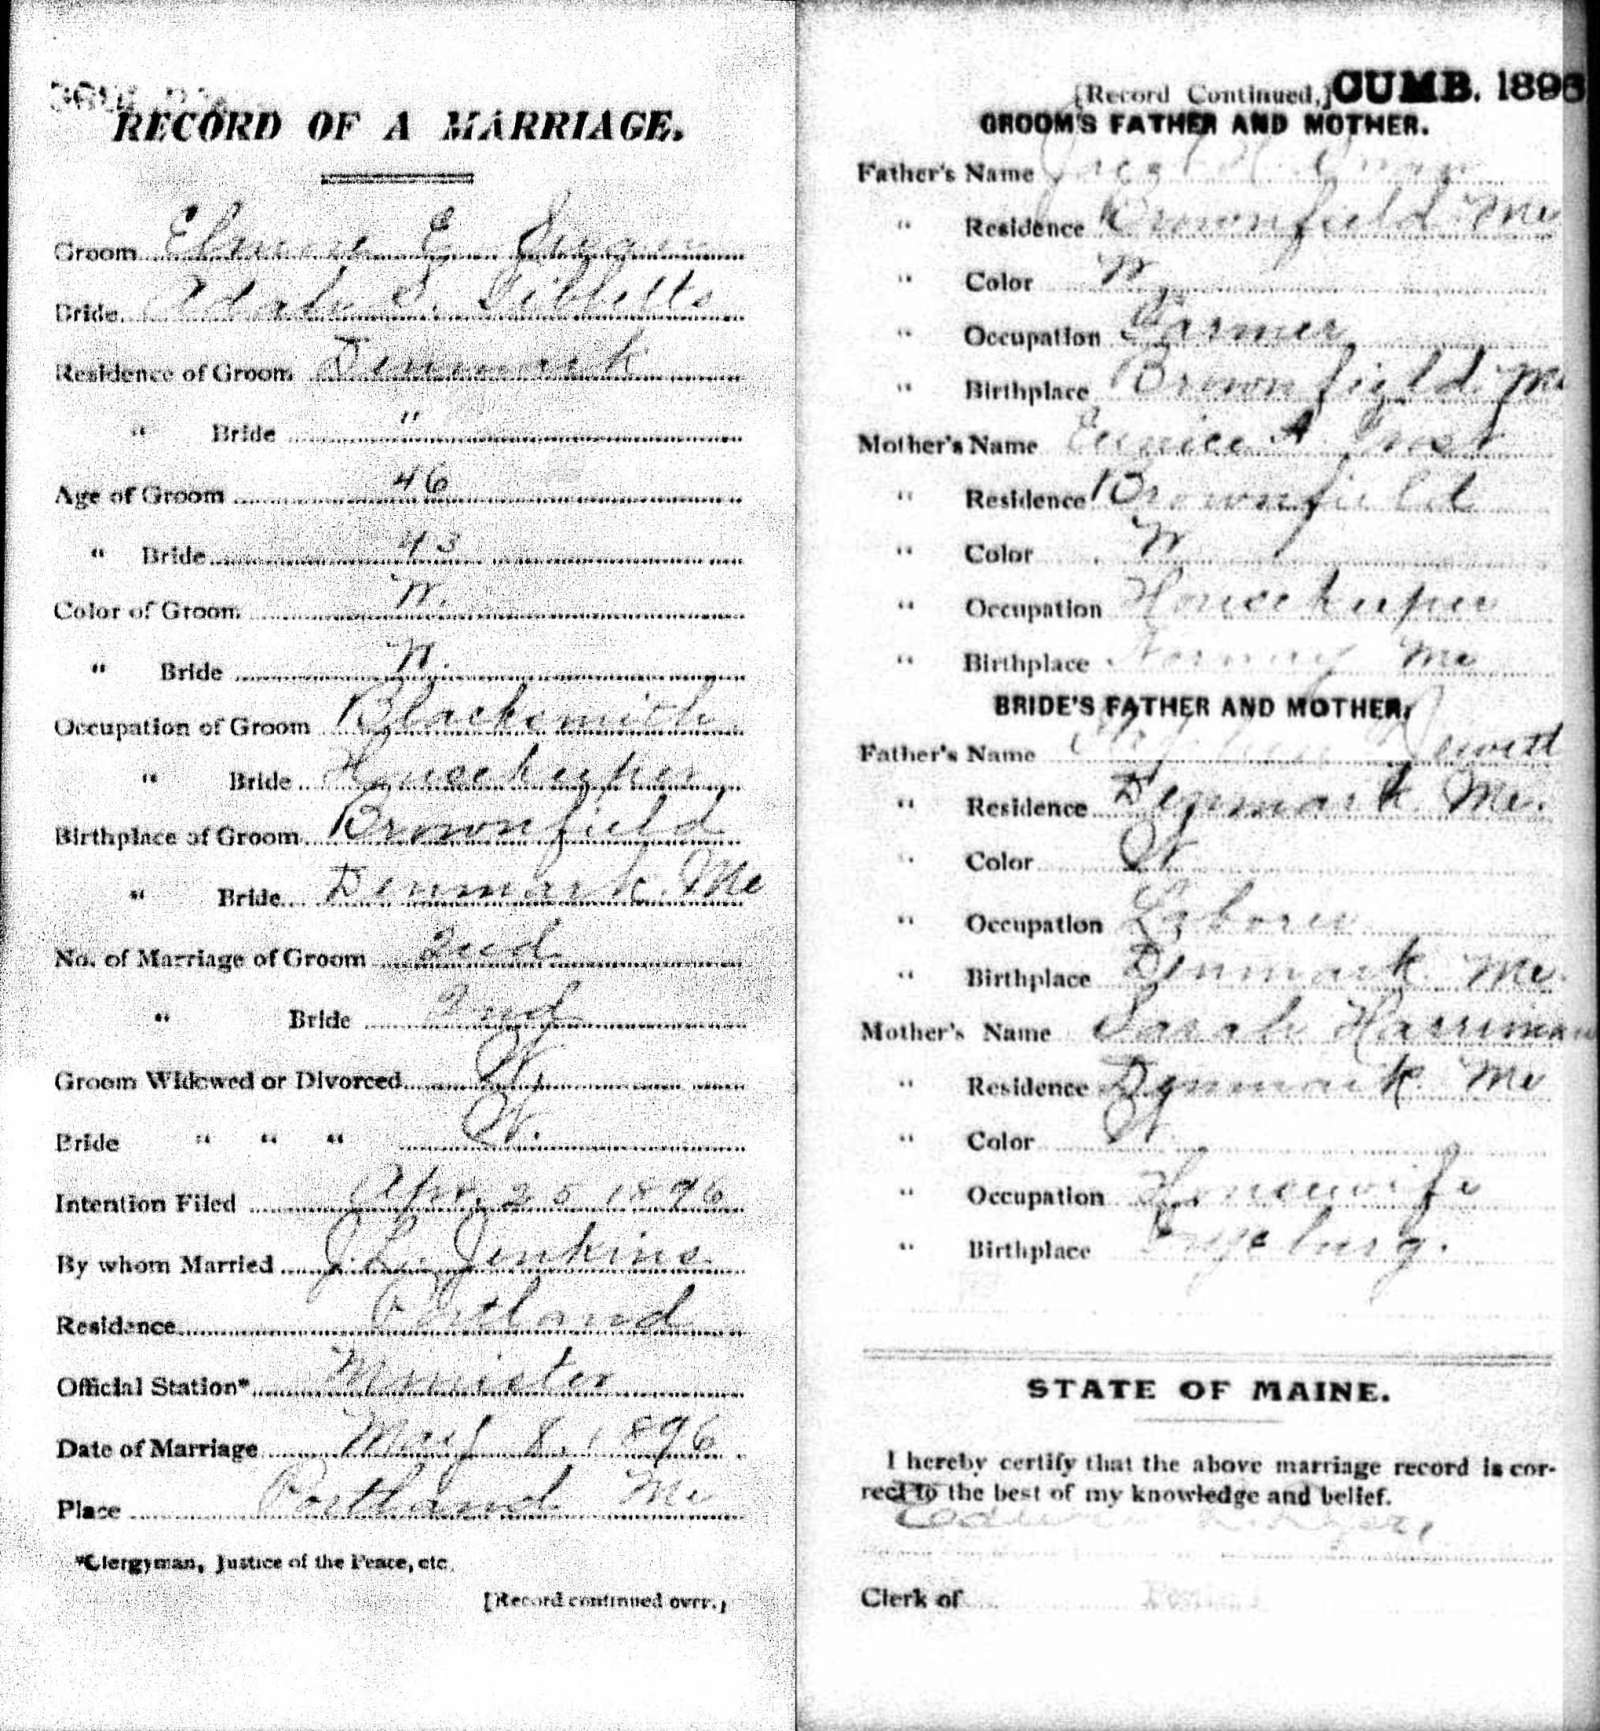 RECORD OF A MARRIAGE.
Groom E. 
Bride S. Tibbetts
Residence of Groom Denmark
" Bride "
Age of Groom 46
" Bride 43
Color of Groom W.
" Bride W.
Occupation of Groom Blacksmith
" Bride Housekeeper
Birthplace of Groom Brownfield
" Bride Denmark Me
No. of Marriage of Groom 2nd
" Bride 2nd
Groom Widowed or Divorced W.
Bride " " " W.
Intention Filed Apr. 25 1896
By whom Married J. L. Jenkins
Residence Portland
Official Station* Minister
Date of Marriage May 8, 1896
Place Portland Me
*Clergyman, Justice of the Peace, etc.
[Record continued over.]
[Record Continued,] CUMB. 1896
GROOM'S FATHER AND MOTHER.
Father's Name
" Residence Brownfield Me
" Color W
" Occupation Farmer
" Birthplace Brownfield Me
Mother's Name Eunice A
" Residence Brownfield
" Color W
" Occupation Housekeeper
" Birthplace Me
BRIDE'S FATHER AND MOTHER.
Father's Name Jewett
" Residence Denmark Me.
" Color W
" Occupation Laborer
" Birthplace Denmark Me
Mother's Name Sarah Harriman
" Residence Denmark Me
" Color W
" Occupation Housewife
" Birthplace Fryeburg.
STATE OF MAINE.
I hereby certify that the above marriage record is cor-
rect to the best of my knowledge and belief.
Clerk of